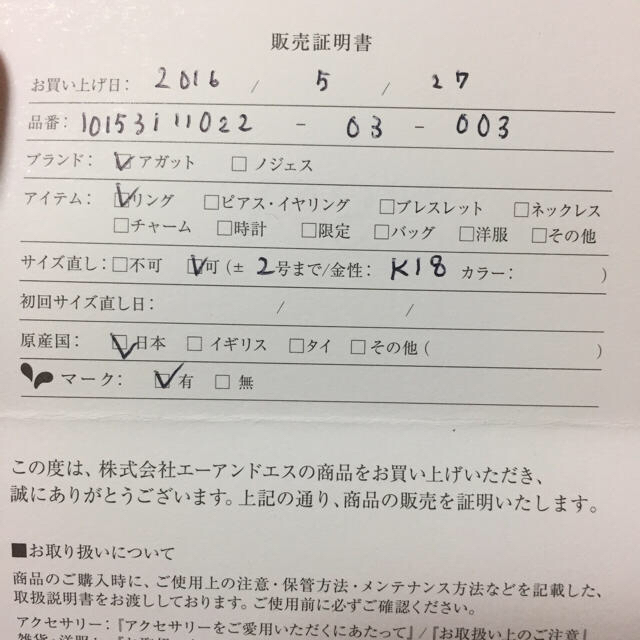 販売証明書
お買い上げ日: 2016 / 5 / 27
品番: 10153111022 - 03 - 003
ブランド: ☑アガット □ノジェス
アイテム: ☑リング □ピアス・イヤリング □ブレスレット □ネックレス
□チャーム □時計 □限定 □バッグ □洋服 □その他
サイズ直し: □不可 ☑可(± 2号まで/金性: K18 カラー: )
初回サイズ直し日: / /
原産国: ☑日本 □イギリス □タイ □その他( )
マーク: ☑有 □無
この度は、株式会社エーアンドエスの商品をお買い上げいただき、
誠にありがとうございます。上記の通り、商品の販売を証明いたします。
■お取り扱いについて
商品のご購入時に、ご使用上の注意・保管方法・メンテナンス方法などを記載した、
取扱説明書をお渡ししております。ご使用前に必ずご確認ください。
アクセサリー:『アクセサリーをご愛用いただくにあたって』/『お取扱い上のご注意』